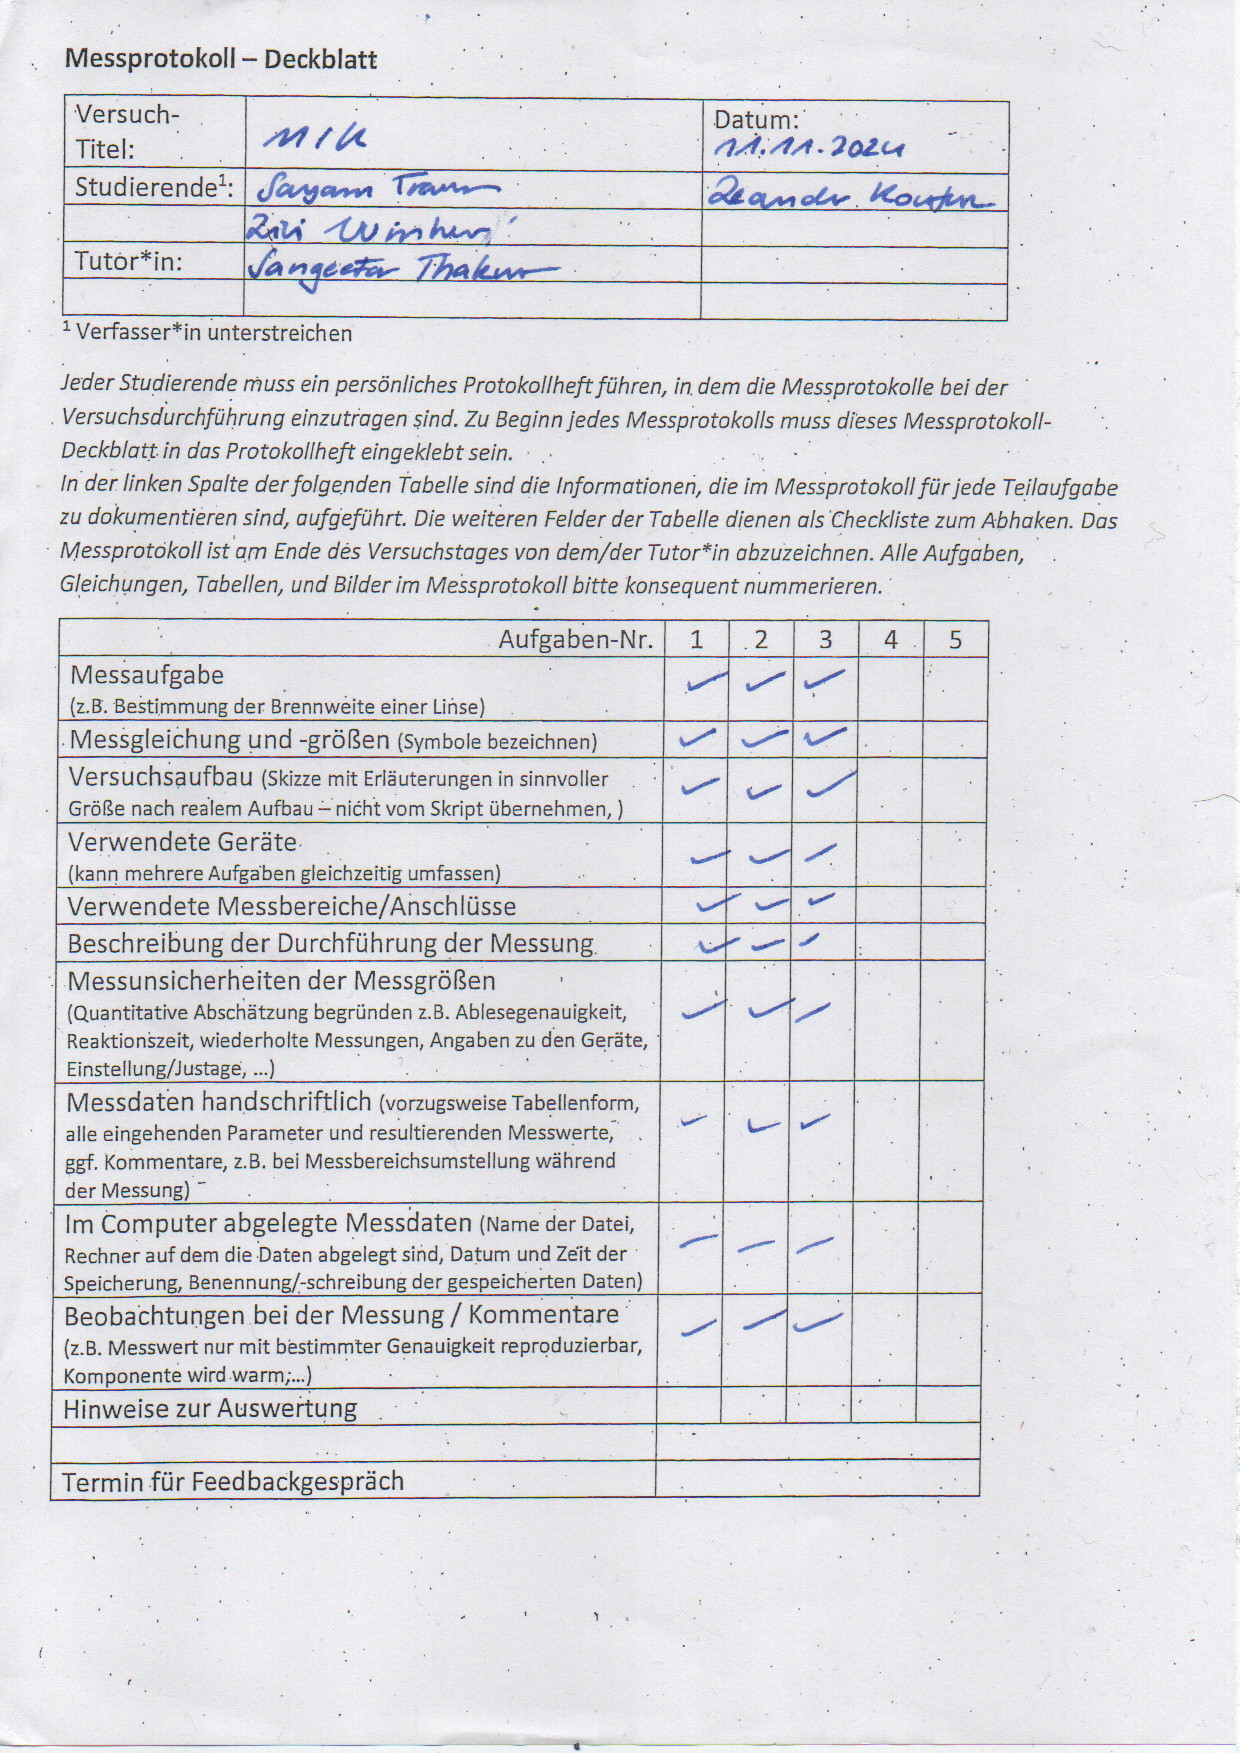 Messprotokoll – Deckblatt
Versuch-
Titel:
MIK
Datum:
11.11.2024
Studierende¹:
Sayam
Leander
Tutor*in:
Sangeeta Thakur
¹ Verfasser*in unterstreichen
Jeder Studierende muss ein persönliches Protokollheft führen, in dem die Messprotokolle bei der
Versuchsdurchführung einzutragen sind. Zu Beginn jedes Messprotokolls muss dieses Messprotokoll-
Deckblatt in das Protokollheft eingeklebt sein.
In der linken Spalte der folgenden Tabelle sind die Informationen, die im Messprotokoll für jede Teilaufgabe
zu dokumentieren sind, aufgeführt. Die weiteren Felder der Tabelle dienen als Checkliste zum Abhaken. Das
Messprotokoll ist am Ende des Versuchstages von dem/der Tutor*in abzuzeichnen. Alle Aufgaben,
Gleichungen, Tabellen, und Bilder im Messprotokoll bitte konsequent nummerieren.
Aufgaben-Nr. 1 2 3 4 5
Messaufgabe
(z.B. Bestimmung der Brennweite einer Linse)
Messgleichung und -größen (Symbole bezeichnen)
Versuchsaufbau (Skizze mit Erläuterungen in sinnvoller
Größe nach realem Aufbau – nicht vom Skript übernehmen, )
Verwendete Geräte
(kann mehrere Aufgaben gleichzeitig umfassen)
Verwendete Messbereiche/Anschlüsse
Beschreibung der Durchführung der Messung
Messunsicherheiten der Messgrößen
(Quantitative Abschätzung begründen z.B. Ablesegenauigkeit,
Reaktionszeit, wiederholte Messungen, Angaben zu den Geräte,
Einstellung/Justage, ...)
Messdaten handschriftlich (vorzugsweise Tabellenform,
alle eingehenden Parameter und resultierenden Messwerte,
ggf. Kommentare, z.B. bei Messbereichsumstellung während
der Messung)
Im Computer abgelegte Messdaten (Name der Datei,
Rechner auf dem die Daten abgelegt sind, Datum und Zeit der
Speicherung, Benennung/-schreibung der gespeicherten Daten)
Beobachtungen bei der Messung / Kommentare
(z.B. Messwert nur mit bestimmter Genauigkeit reproduzierbar,
Komponente wird warm,...)
Hinweise zur Auswertung
Termin für Feedbackgespräch